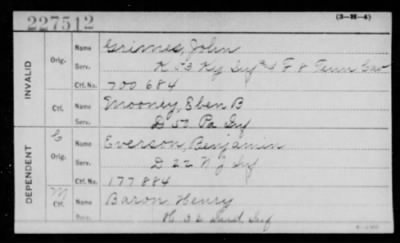 227512
(3-H-4)
INVALID
Orig.
Name Grimes, John
Serv. K 53 Ky Inf & F 8 Tenn Cav
Ctf. No. 700684
Ctf.
Name Mooney, Eben B
D 57 Pa Inf
DEPENDENT
E
Orig.
Name Everson, Benjamin
Serv. D 22 N J Inf
Ctf. No. 177884
M
Ctf.
Name Baron, Henry
Serv. H 32 Ind Inf